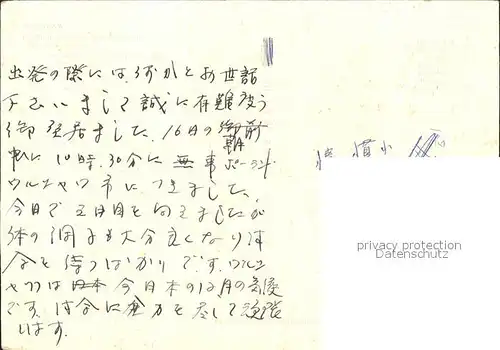 出発の際には、何かとお世話
下さいまして誠に有難う
御座居ました。16日の朝
10時.30分に無事ポーランド
ワルシャワ市につきました。
今日で三日目を向えましたが
体の調子も大分良くなり
を待つばかりです。ワルシ
ャワは今日本の12月の気候
です。試合に全力を尽して頑張
います。
privacy protection
Datenschutz